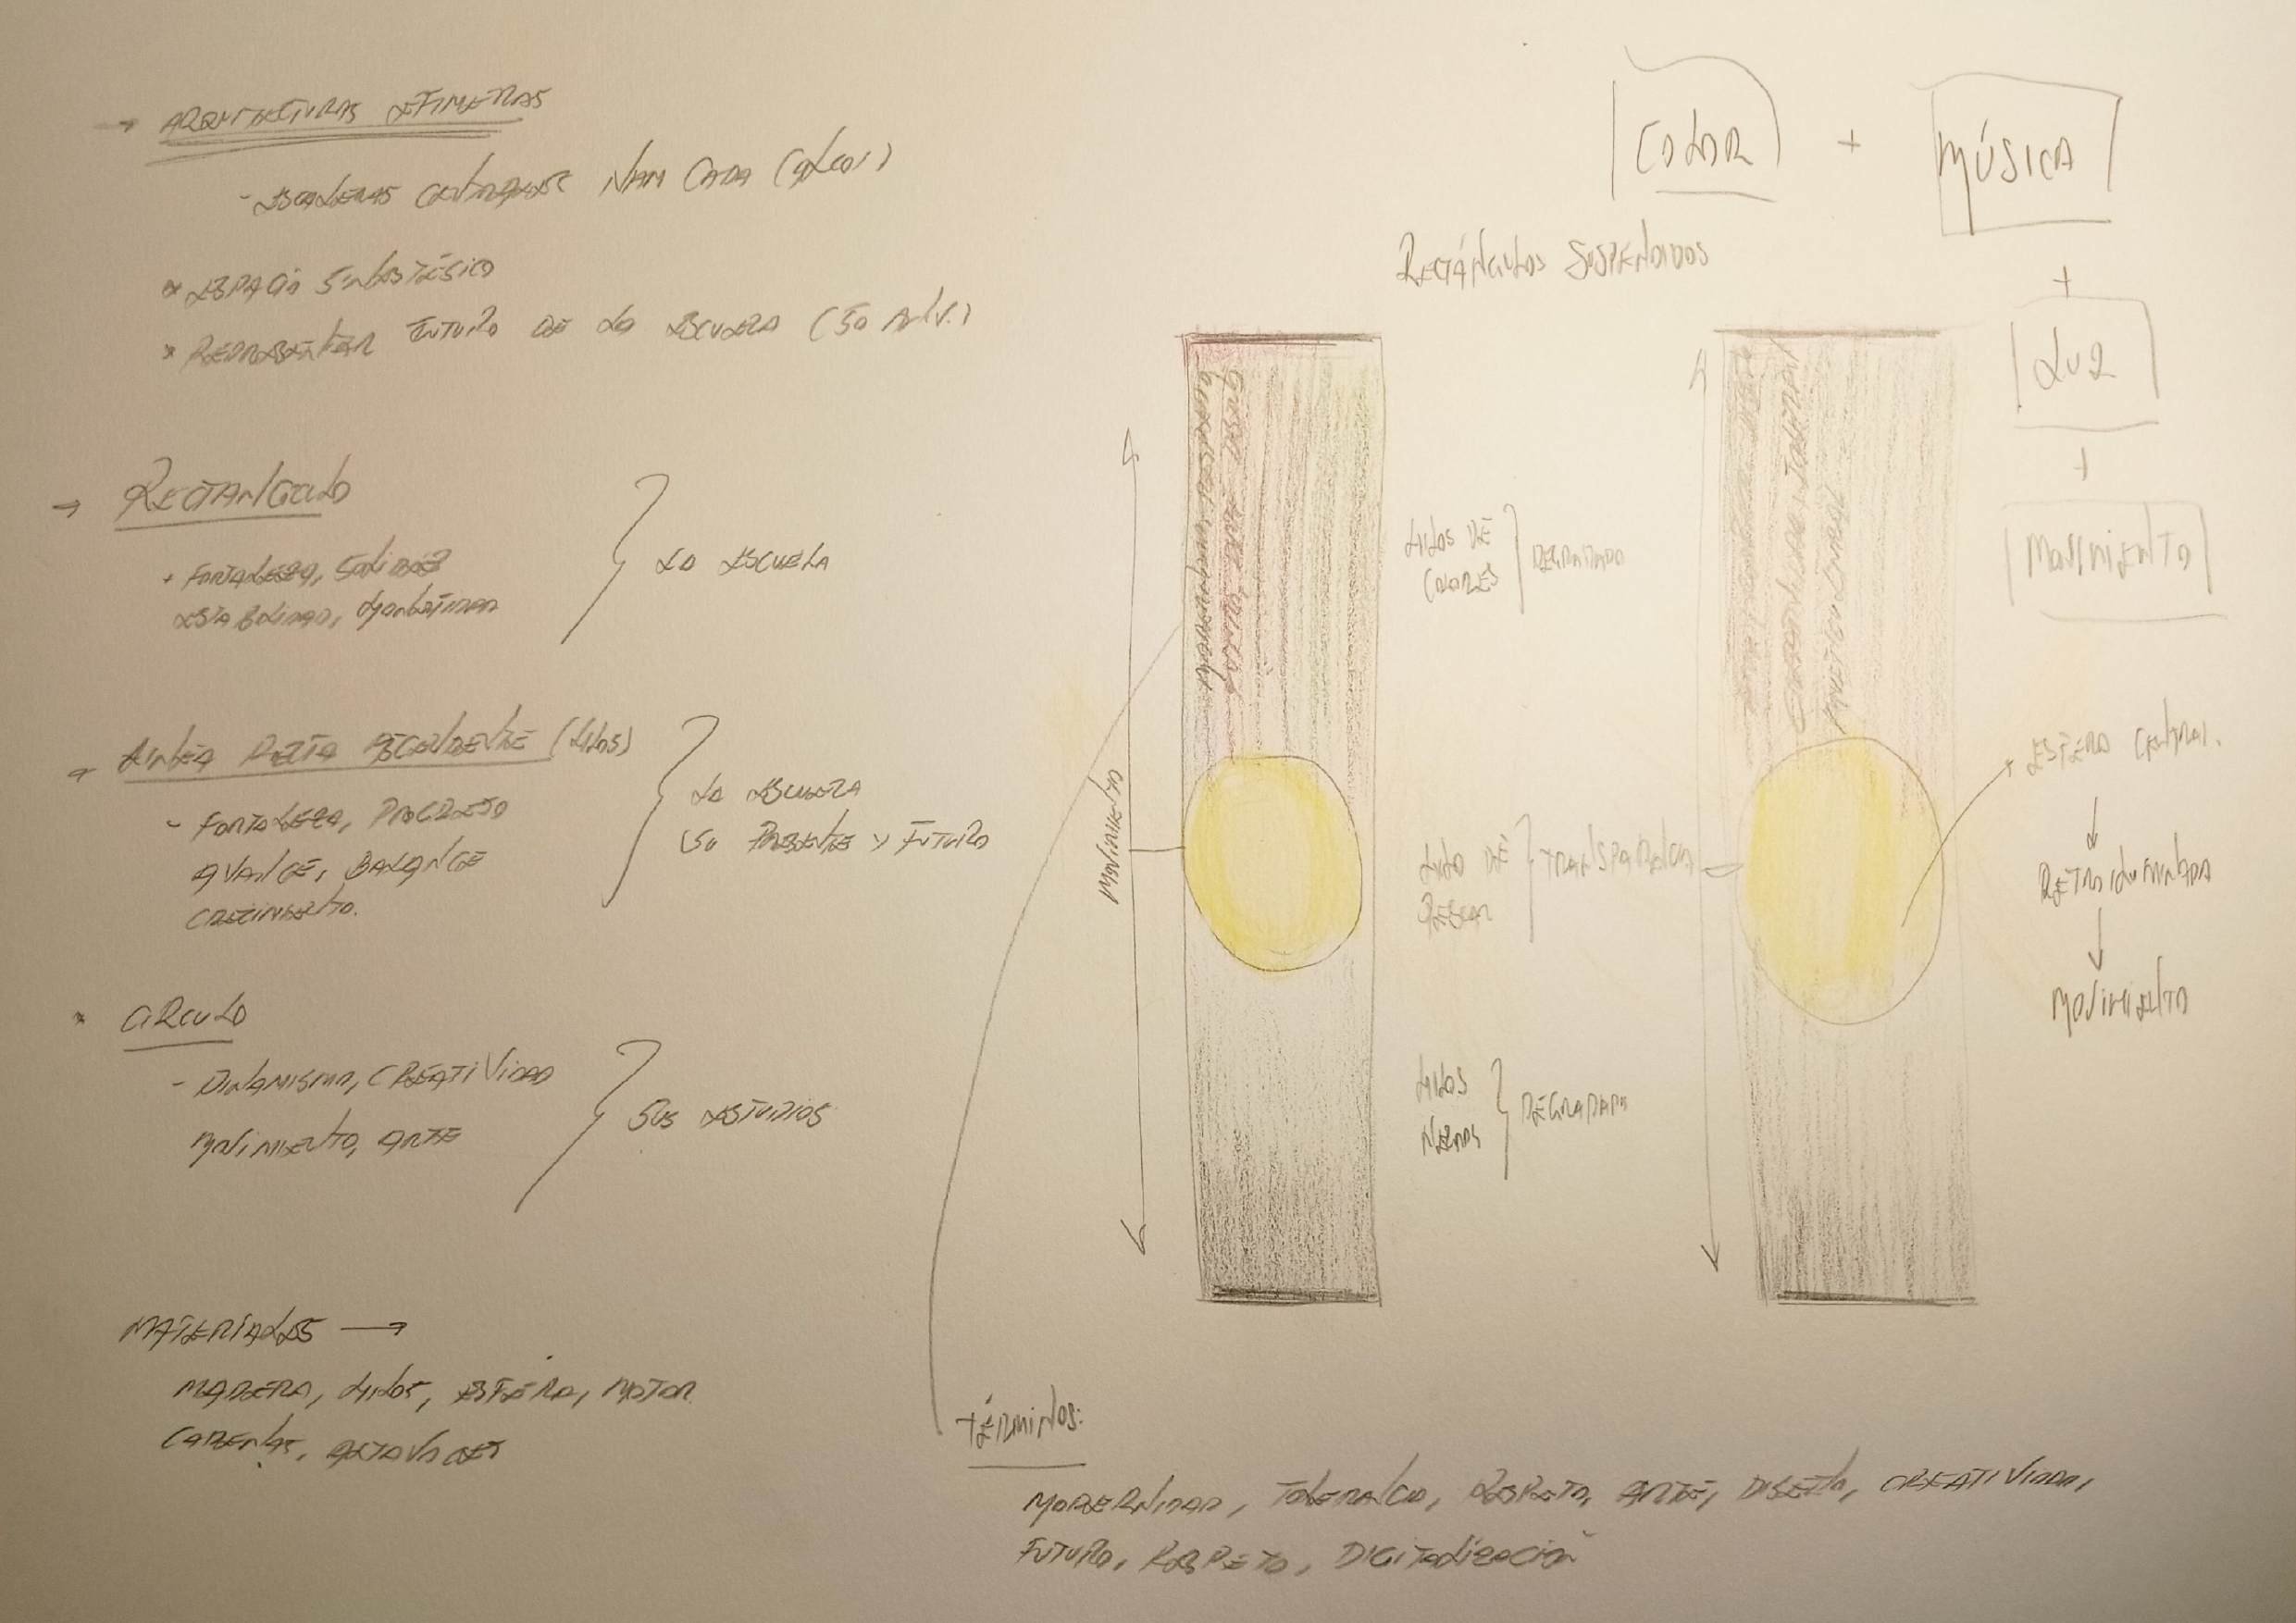 → ARQUITECTURAS EFIMERAS
- ESCALERAS CENTRALES
* ESPACIO SINESTÉSICO
* REPRESENTAR FUTURO DE LA ESCUELA (50 ANIV.)
→ RECTANGULO
+ FORTALEZA, SOLIDEZ
ESTABILIDAD,
LA ESCUELA
→ LINEA RECTA ASCENDENTE (HILOS)
- FORTALEZA, PROGRESO
AVANCE, BALANCE
CRECIMIENTO.
LA ESCUELA
(SU PRESENTE Y FUTURO
* CIRCULO
- DINAMISMO, CREATIVIDAD
MOVIMIENTO, ARTE
SUS ESTUDIOS
MATERIALES →
MADERA, HILOS, ESFERA, MOTOR
COLOR + MÚSICA
+
LUZ
+
MOVIMIENTO
RECTÁNGULOS SUSPENDIDOS
MOVIMIENTO
HILOS DE
COLORES
DEGRADADO
HILO DE
PESCAR
TRANSPARENCIA
HILOS
NEGROS
DEGRADADO
ESFERA CENTRAL.
↓
RETROILUMINADA
↓
MOVIMIENTO
TÉRMINOS:
MODERNIDAD, TOLERANCIA, RESPETO, ARTE, DISEÑO, CREATIVIDAD,
FUTURO, RESPETO, DIGITALIZACIÓN